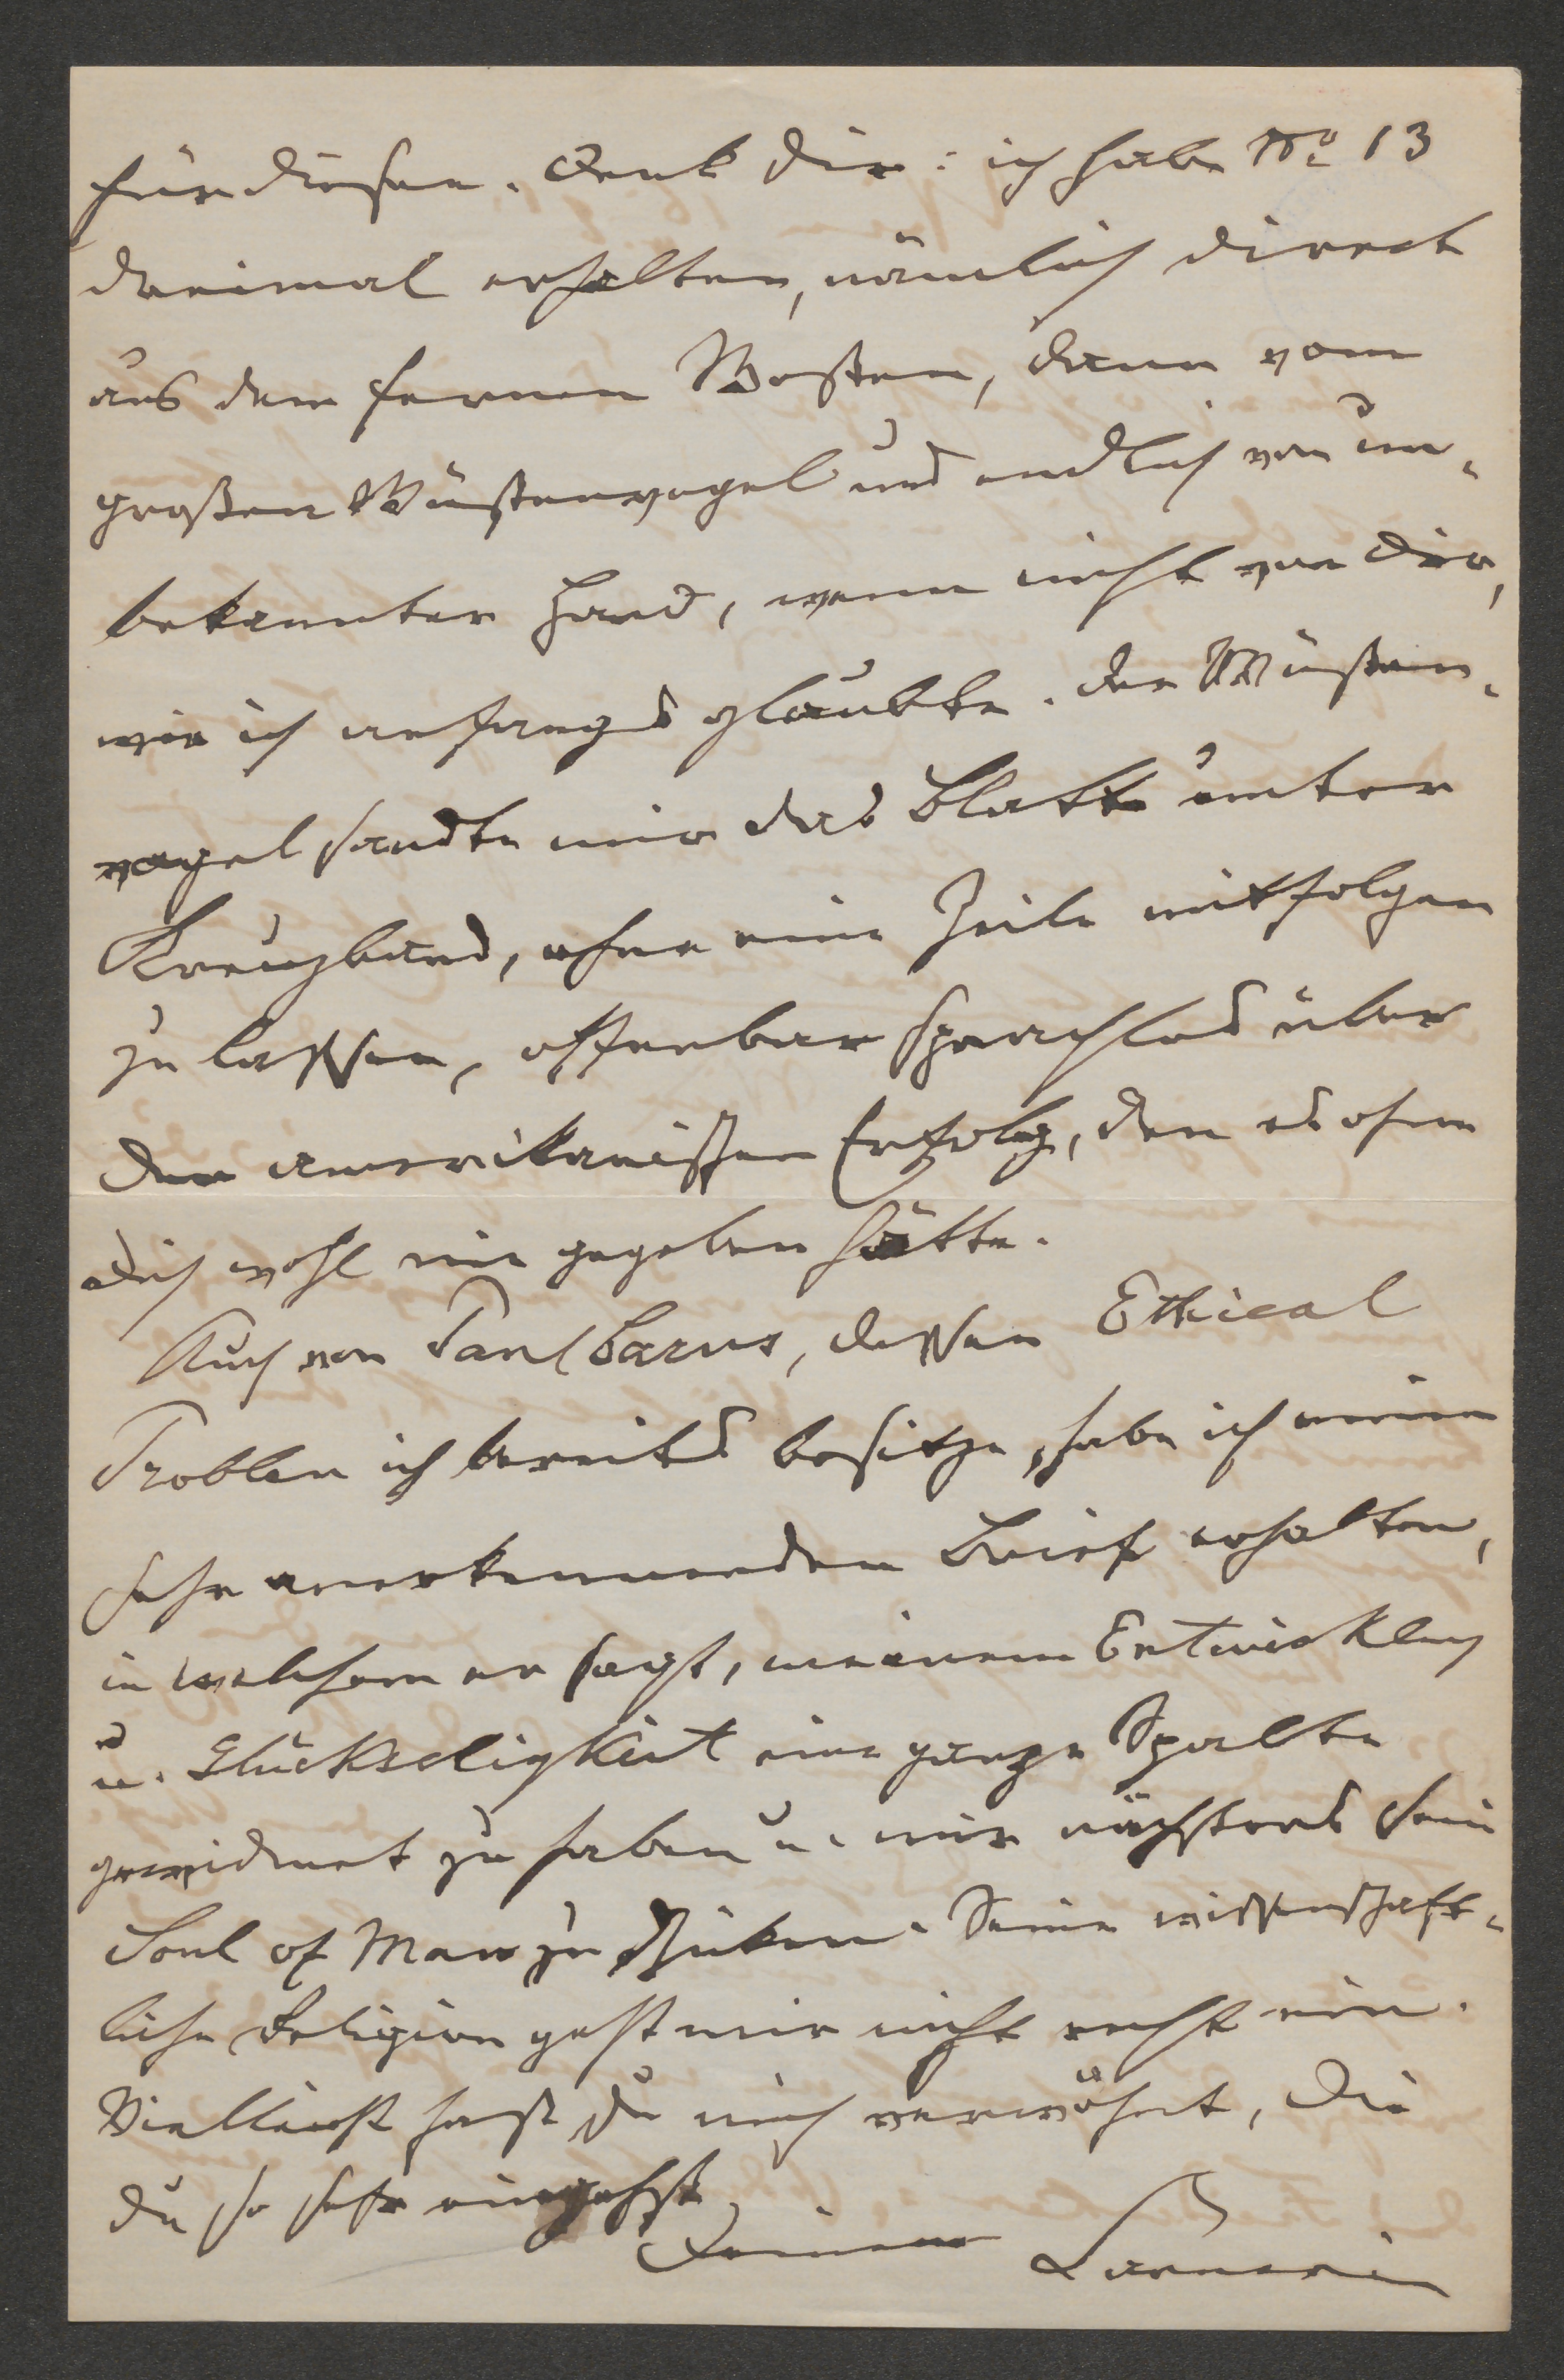 für diesen. Denk dir: ich habe No 13
dreimal erhalten, nämlich direct
aus dem fernen Westen, dann vom
großen Wüstenvogel und endlich von un-
bekannter Hand, wenn nicht von dir,
wie ich anfangs glaubte. Der Wüsten-
vogel sandte mir das Blatt unter
Kreuzband, ohne eine Zeile mitfolgen
zu lassen, offenbar sprachlos über
den amerikanischen Erfolg, den es ohne
dich wohl nie gegeben hätte.
Auch von Paul Carus, dessen Ethical
Problem ich bereits besitze, habe ich einen
sehr anerkennenden Brief erhalten,
in welchem er sagt, meinem Entwicklung
u. Glückseligkeit eine ganze Spalte
gewidmet zu haben u. mir nächstens sein
Soul of Man zu schicken. Seine wissenschaft-
liche Religion geht mir nicht recht ein.
Vielleicht hast du mich verwöhnt, die
du so sehr eingehst
Deinem Carneri